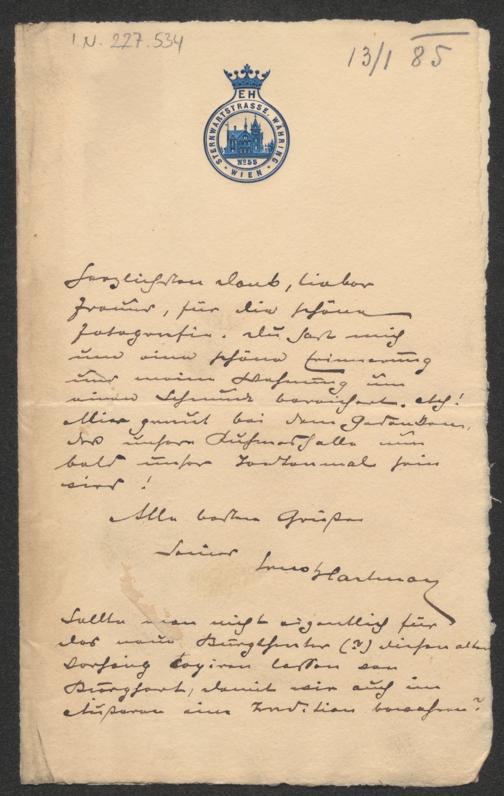 I.N. 227.534
13/1 85
EH
STERNWARTSTRASSE. WÄHRING
No 55
WIEN
Herzlichsten Dank, lieber
Freund, für die schöne
Fotografie. Du hast mich
um eine schöne Erinnerung
und meine Wohnung um
einen Schmuck bereichert. Ach!
Mir graut bei dem Gedanken,
daß unsere Ruhmeshalle nun
bald unser Todtenmal sein
wird!
Alle besten Grüße
Deines
Ernst Hartmann
Sollte man nicht eigentlich für
das neue Burgtheater (?) diesen alten
Vorhang copiren lassen von
Burghart, damit wir auch im
Äußeren eine Tradition bewahren?